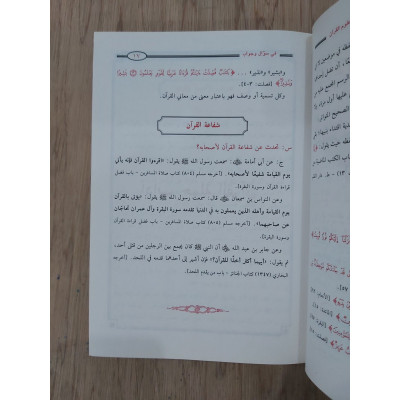 في سؤال وجواب
والبشير والنذير ... ﴿كِتَابٌ فُصِّلَتْ آيَاتُهُ قُرْآنًا عَرَبِيًّا لِقَوْمٍ يَعْلَمُونَ ۝ بَشِيرًا
وَنَذِيرًا﴾ [فصلت: ٣-٤].
وكل تسمية أو وصف فهو باعتبار معنى من معاني القرآن.
شفاعة القرآن
س: تحدث عن شفاعة القرآن لأصحابه؟
ج: عن أبي أمامة ﷺ: سمعت رسول الله ﷺ يقول: «اقرءوا القرآن فإنه يأتي
يوم القيامة شفيعًا لأصحابه». (أخرجه مسلم (٨٠٤) كتاب صلاة المسافرين - باب فضل
قراءة القرآن وسورة البقرة).
وعن النواس بن سمعان قال: سمعت رسول الله ﷺ يقول: «يؤتى بالقرآن
يوم القيامة وأهله الذين يعملون به في الدنيا تقدمه سورة البقرة وآل عمران تحاجان
عن صاحبهما». (أخرجه مسلم (٨٠٥) كتاب صلاة المسافرين - باب فضل قراءة القرآن
وسورة البقرة).
وعن جابر بن عبد الله أن النبي ﷺ كان يجمع بين الرجلين من قتلى أحد،
ثم يقول: «أيهما أكثر أخذًا للقرآن؟» فإن أشير إلى أحدهما قدمه في اللحد. (أخرجه
البخاري (١٣٤٧) كتاب الجنائز - باب من يقدم في اللحد).